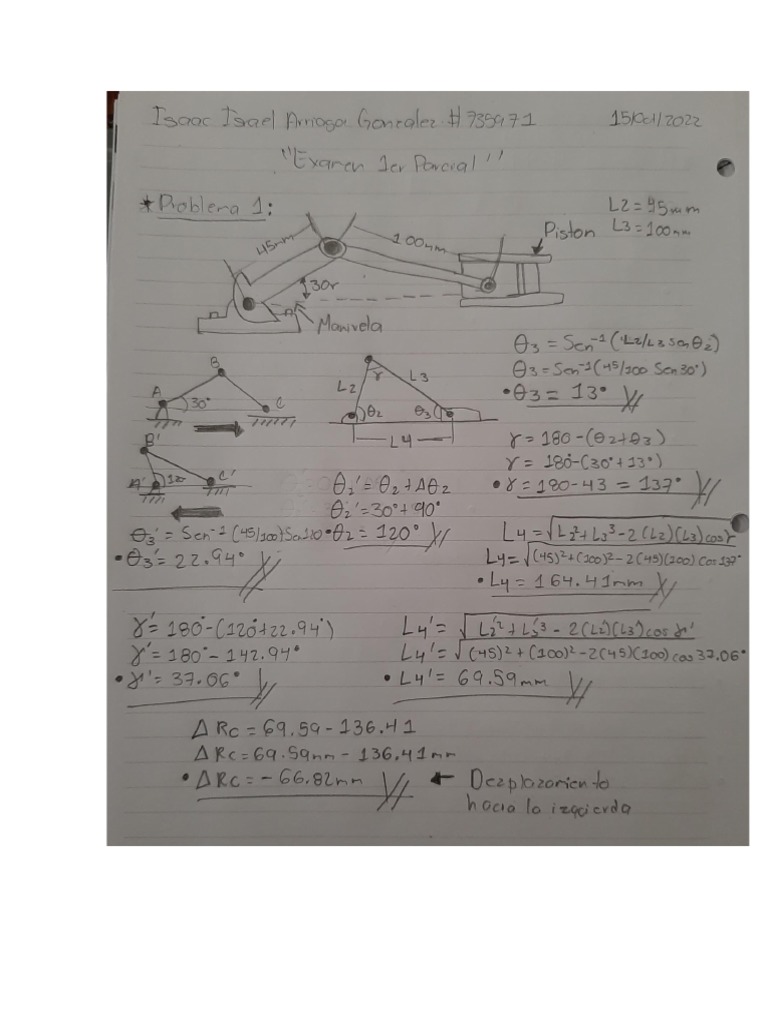 Isaac Israel Arriaga Gonzalez #735971 15/Oct/2022
"Examen 1er Parcial"
*Problema 1:
L2 = 45mm
L3 = 100mm
45mm
100mm
Piston
30r
Manivela
θ3 = Sen⁻¹ (L2/L3 senθ2)
θ3 = Sen⁻¹ (45/100 Sen30°)
• θ3 = 13°
A
B
30°
C
L2
γ
L3
θ2
θ3
L4
γ = 180-(θ2+θ3)
γ = 180-(30°+13°)
• γ = 180-43 = 137°
B'
A'
120
C'
θ2' = θ2 + Δθ2
θ2' = 30° + 90°
• θ2 = 120°
θ3' = Sen⁻¹ (45/100) Sen120
• θ3' = 22.94°
L4 = √L2²+L3³-2(L2)(L3)cosγ
L4 = √(45)²+(100)²-2(45)(100)cos137°
• L4 = 164.41mm
γ' = 180°-(120°+22.94°)
γ' = 180° - 142.94°
• γ' = 37.06°
L4' = √L2'²+L3'³-2(L2)(L3)cosγ'
L4' = √(45)²+(100)²-2(45)(100)cos37.06°
• L4' = 69.59mm
ΔRc = 69.59 - 136.41
ΔRc = 69.59mm - 136.41mm
• ΔRc = -66.82mm ← Dezplazamiento
hacia la izquierda